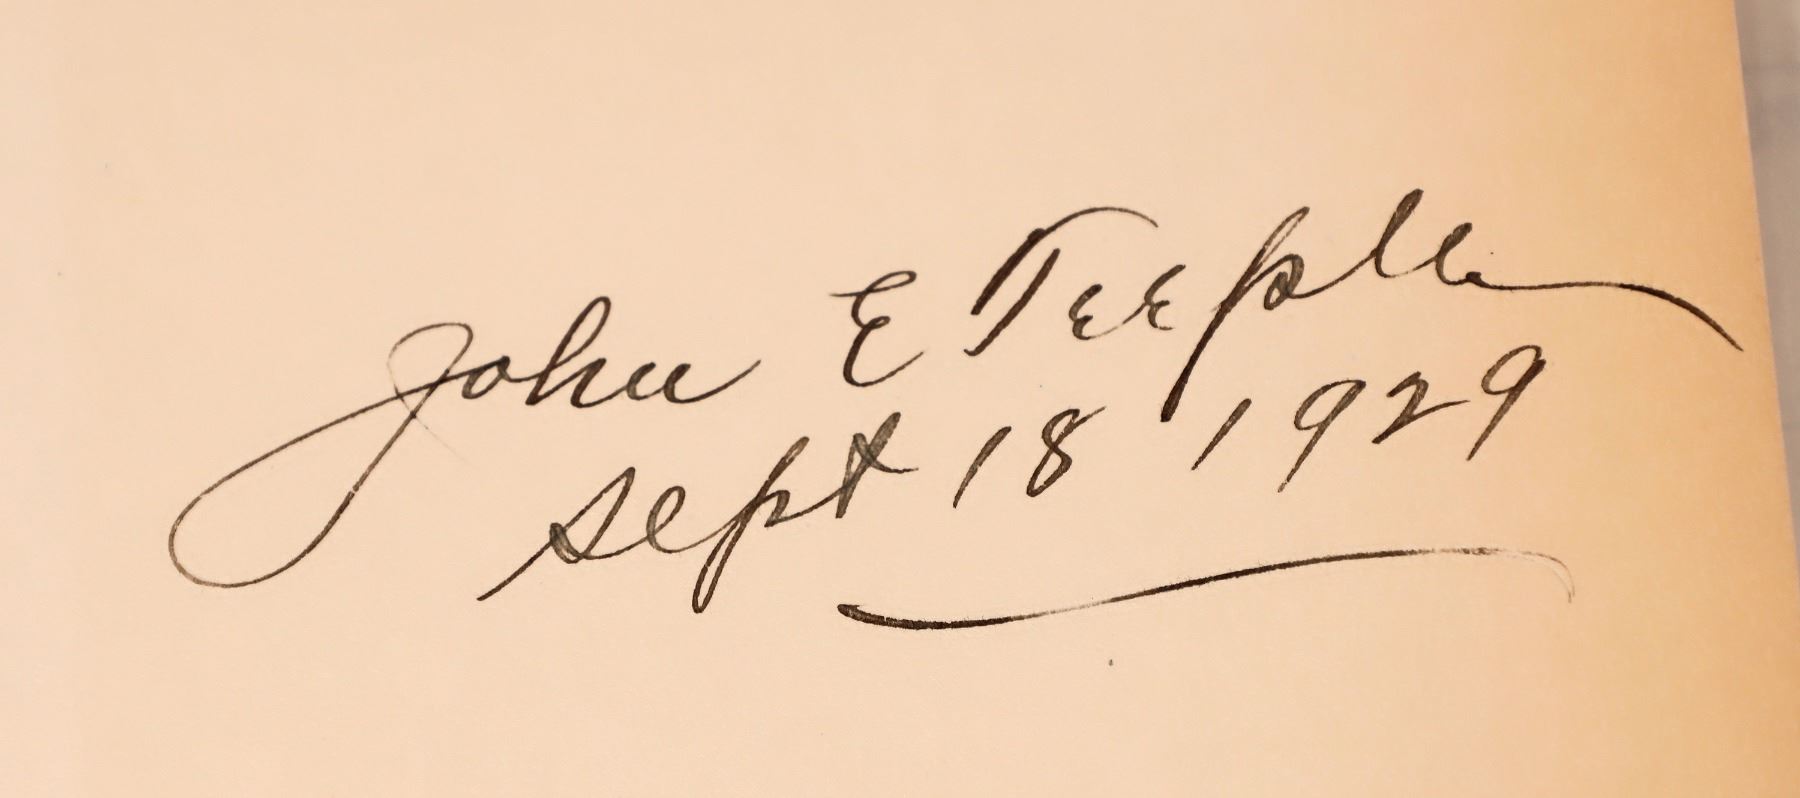 John E Teeple
Sept 18 1929